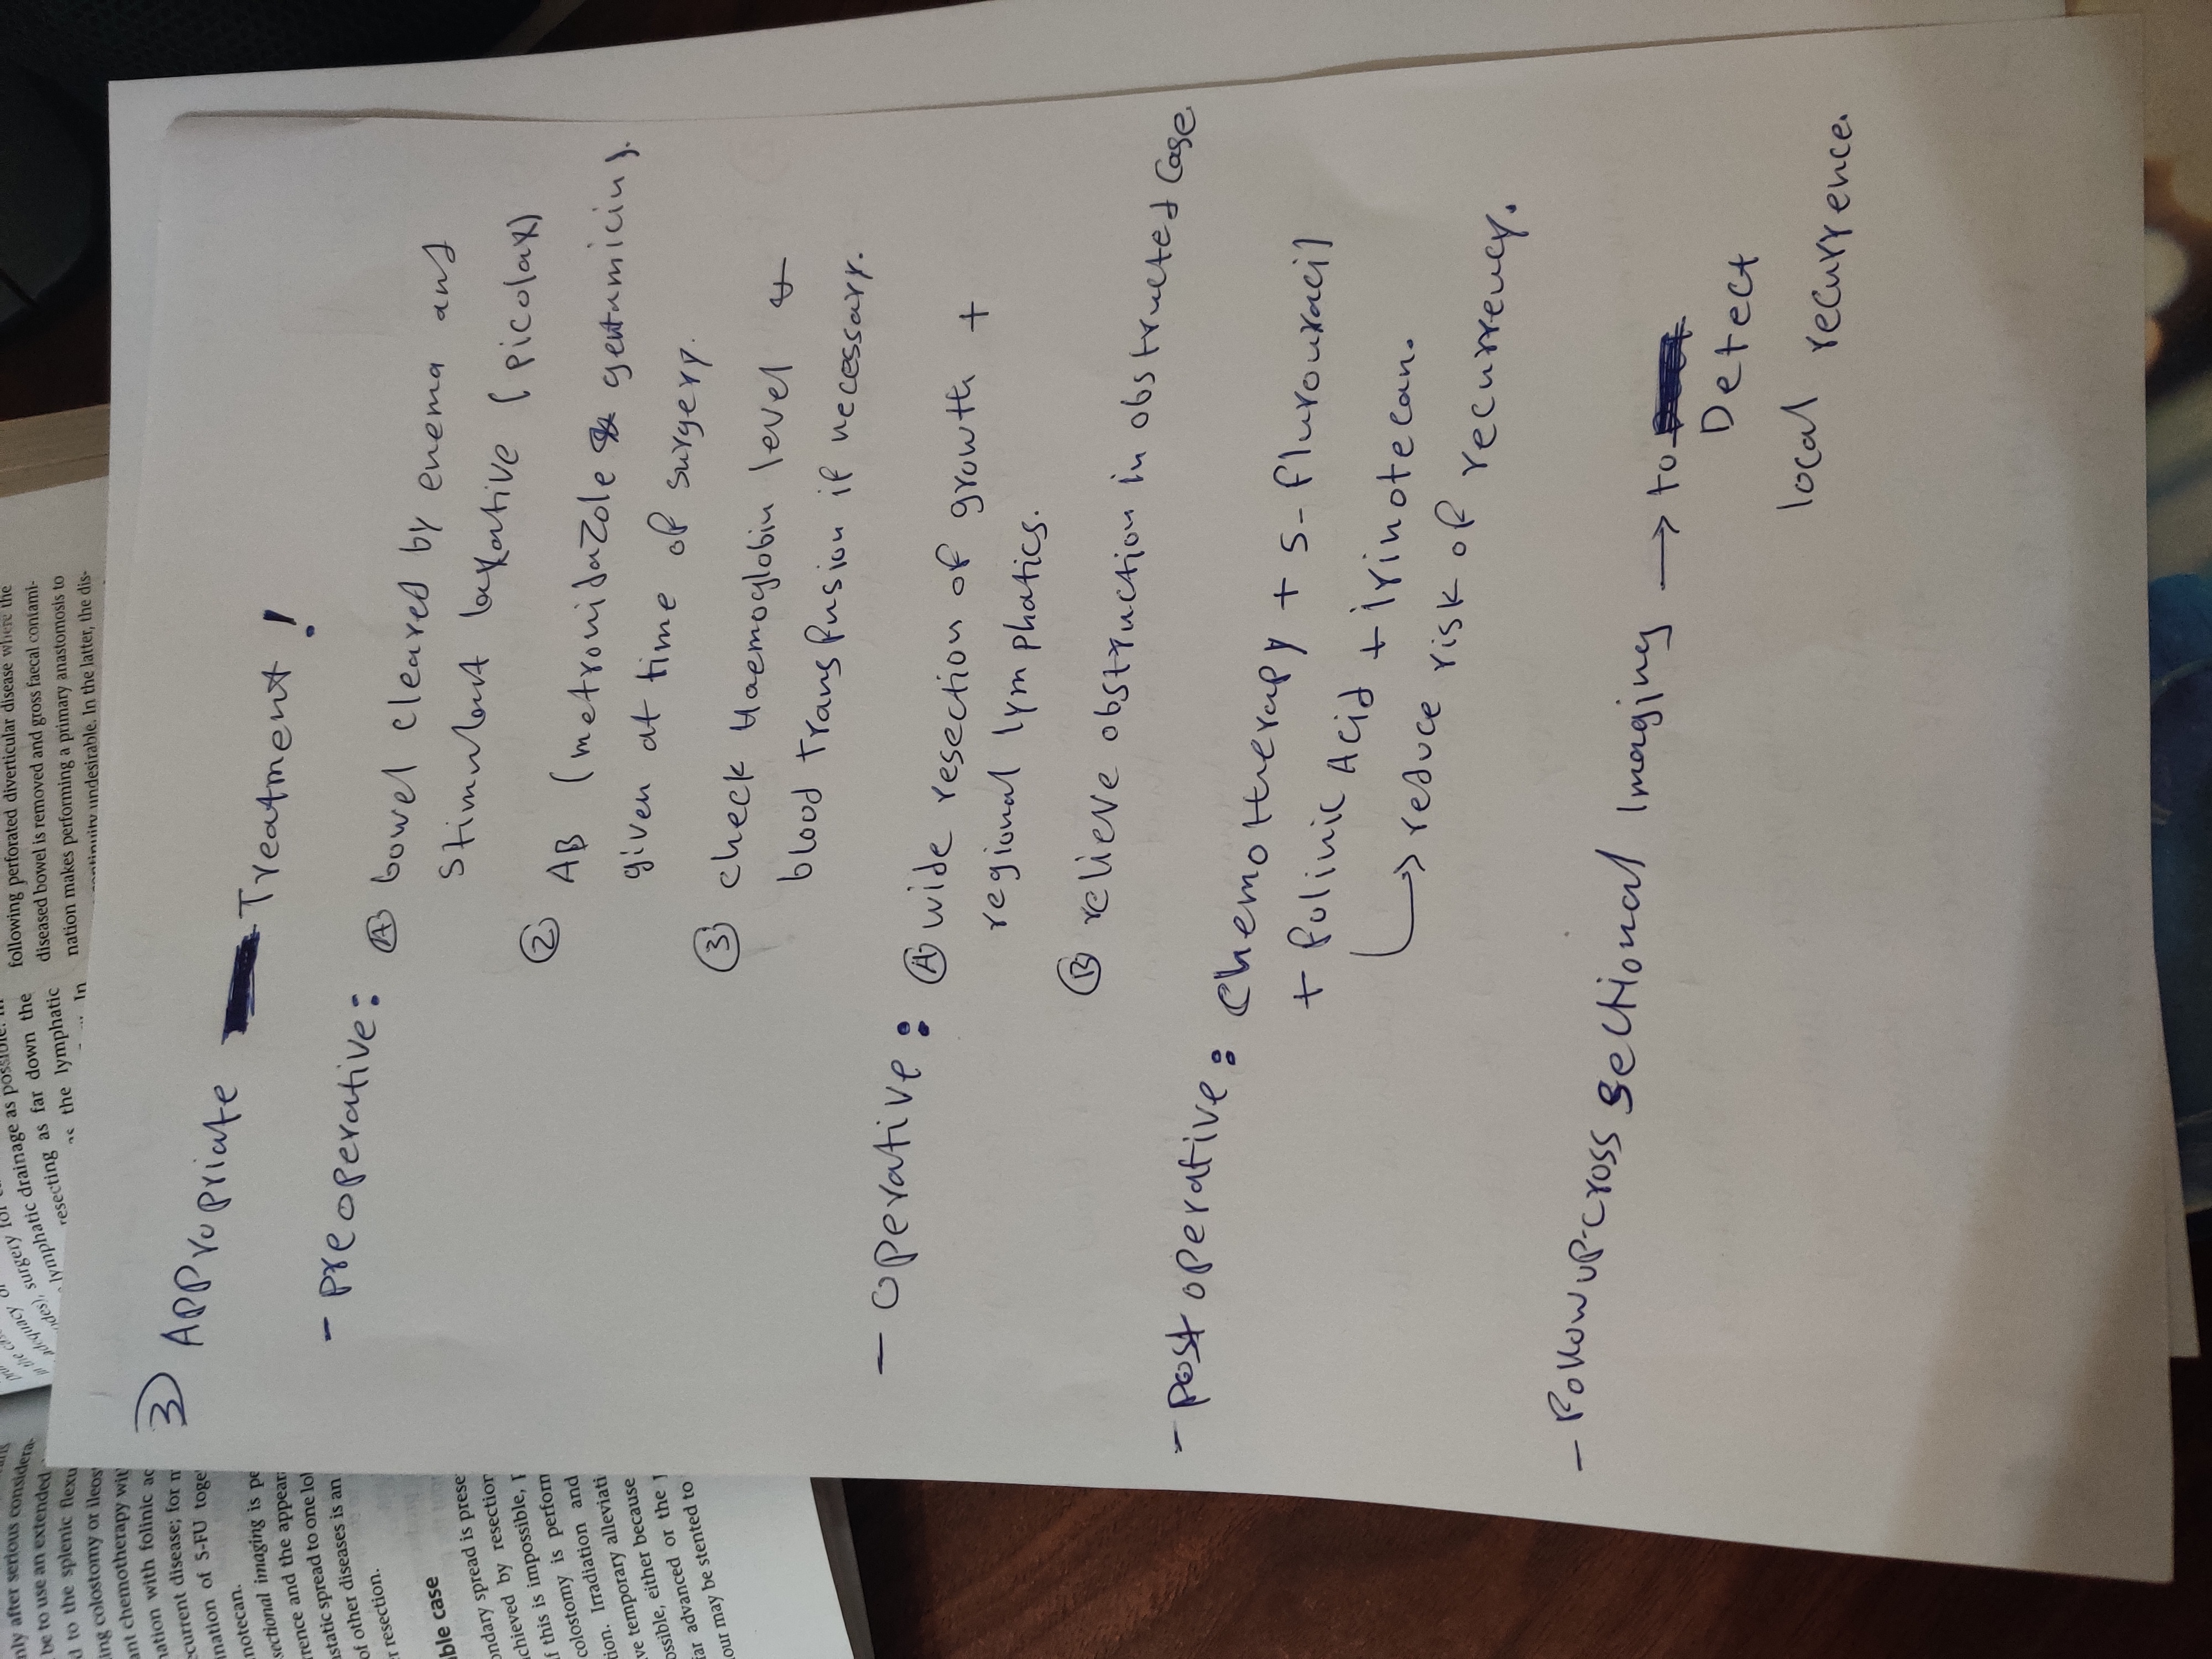 3) Appropriate Treatment!
- preoperative: Ⓐ bowel cleared by enema and
stimulant laxative (picolax)
② AB (metronidazole & gentamicin).
given at time of surgery.
③ check Haemoglobin level &
blood transfusion if necessary.
- operative: Ⓐ wide resection of growth +
regional lymphatics.
Ⓑ relieve obstruction in obstructed case.
- post operative: Chemotherapy + 5-flurouracil
+ folinic Acid + irinotecan.
↳ reduce risk of recurrency.
- Follow up-cross sectional Imaging → to
Detect
local recurrence.
following perforated diverticular disease where the
diseased bowel is removed and gross faecal contami-
nation makes performing a primary anastomosis to
continuity undesirable. In the latter, the dis-
surgery for
lymphatic drainage as possible. In
resecting as far down the
the lymphatic
In
nly after serious considera-
be to use an extended
d to the splenic flexu
ing colostomy or ileos
ant chemotherapy wit
nation with folinic ac
ecurrent disease; for m
ination of 5-FU toge
notecan.
sectional imaging is pe
rrence and the appear
astatic spread to one lo
of other diseases is an
r resection.
ble case
ondary spread is prese
achieved by resection
f this is impossible,
colostomy is perform
tion. Irradiation and
ve temporary alleviati
ossible, either because
ar advanced or the
our may be stented to